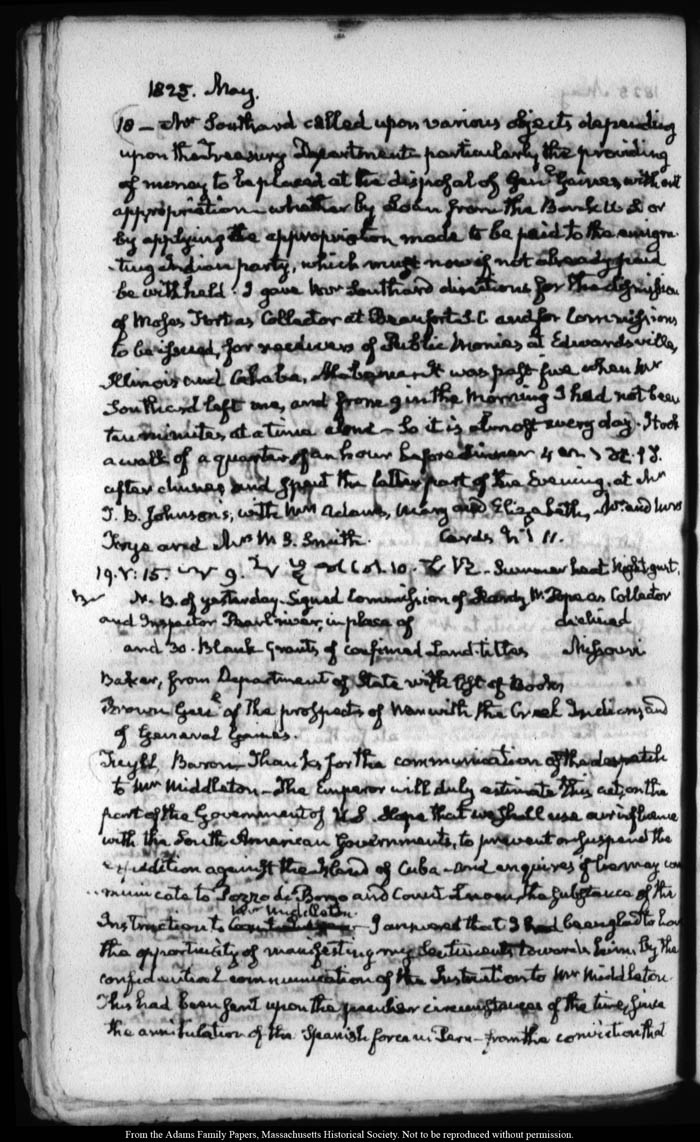 1825. May.
18 — Mr Southard called upon various objects depending
upon the Treasury Department particularly the providing
of money to be placed at the disposal of Genl Gaines, without
appropriation — whether by Loan from the Bank U S or
by applying the appropriation made to be paid to the emigra
ting Indian party, which must now if not already paid
be withheld. I gave Mr Southard directions for the dismission
of Moses Fort as Collector at Beaufort S.C. and for Commissions
to be issued, for receivers of Public Monies at Edwardsville,
Illinois and Cahaba, Alabama. It was past five when Mr
Southard left me, and from 9 in the Morning I had not been
ten minutes at a time alone — So it is almost every day. I took
a walk of a quarter of an hour before dinner
after dinner and spent the latter part of the Evening, at Mr
T. B. Johnson's, with Mrs Adams, Mary and Elizabeth, Mr and Mrs
Frye and Mrs M B. Smith. Cards 11.
19. V: 15. 9. 10. Summer heat Night gust.
N. B. of yesterday. Signed Commission of Hardy M. Pope as Collector
and Inspector Pearl river, in place of declined
and 30. Blank Grants of confirmed Land-titles Missouri
Baker, from Department of State with list of Books
Brown Genl of the prospects of War with the Creek Indians, and
of General Gaines.
Tuyll, Baron — Thanks for the communication of the despatch
to Mr Middleton — The Emperor will duly estimate this act, on the
part of the Government of U.S. Hope that we shall use our influence
with the South American Governments, to prevent or suspend the
expedition against the Island of Cuba — and enquires if he may com
municate to Pozzo di Borgo and Count the substance of the
Mr Middleton
Instruction to — I answered that I had been glad to have
the opportunity of manifesting my sentiments towards him by the
confidential communication of the Instruction to Mr Middleton.
This had been sent upon the peculiar circumstances of the time, since
the annihilation of the Spanish force in Peru — from the conviction that
From the Adams Family Papers, Massachusetts Historical Society. Not to be reproduced without permission.